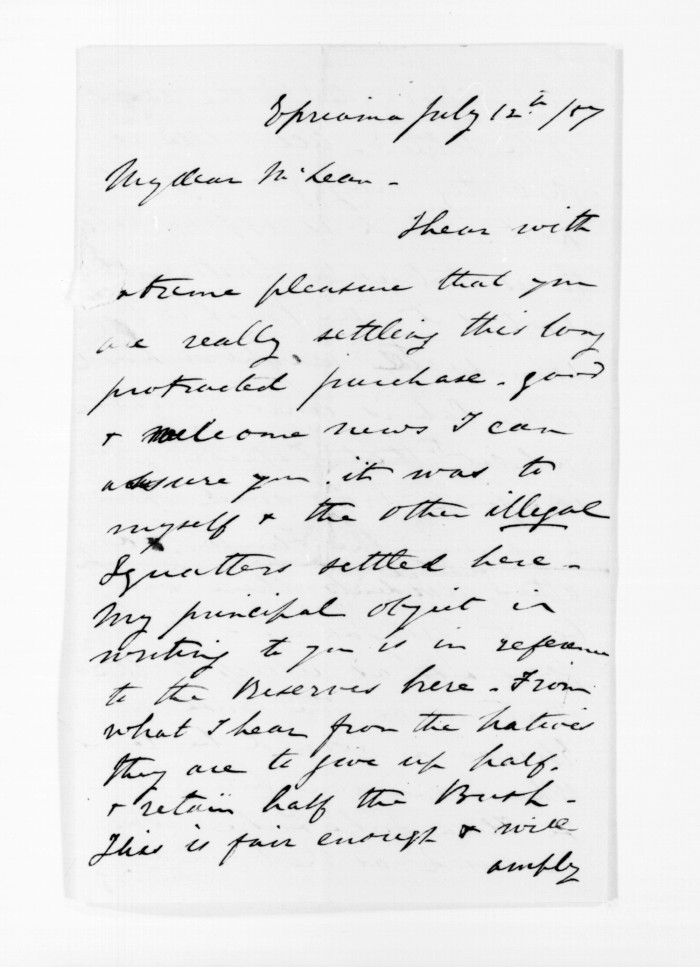 Epreaima July 12th /57
My dear McLean -
I hear with
extreme pleasure that you
are really settling this long
protracted purchase. good
& welcome news I can
assure you it was to
myself & the other illegal
Squatters settled here -
My principal object in
writing to you is in reference
to the Reserves here. From
what I hear from the natives
they are to give up half.
& retain half the Bush -
This is fair enough & will
amply